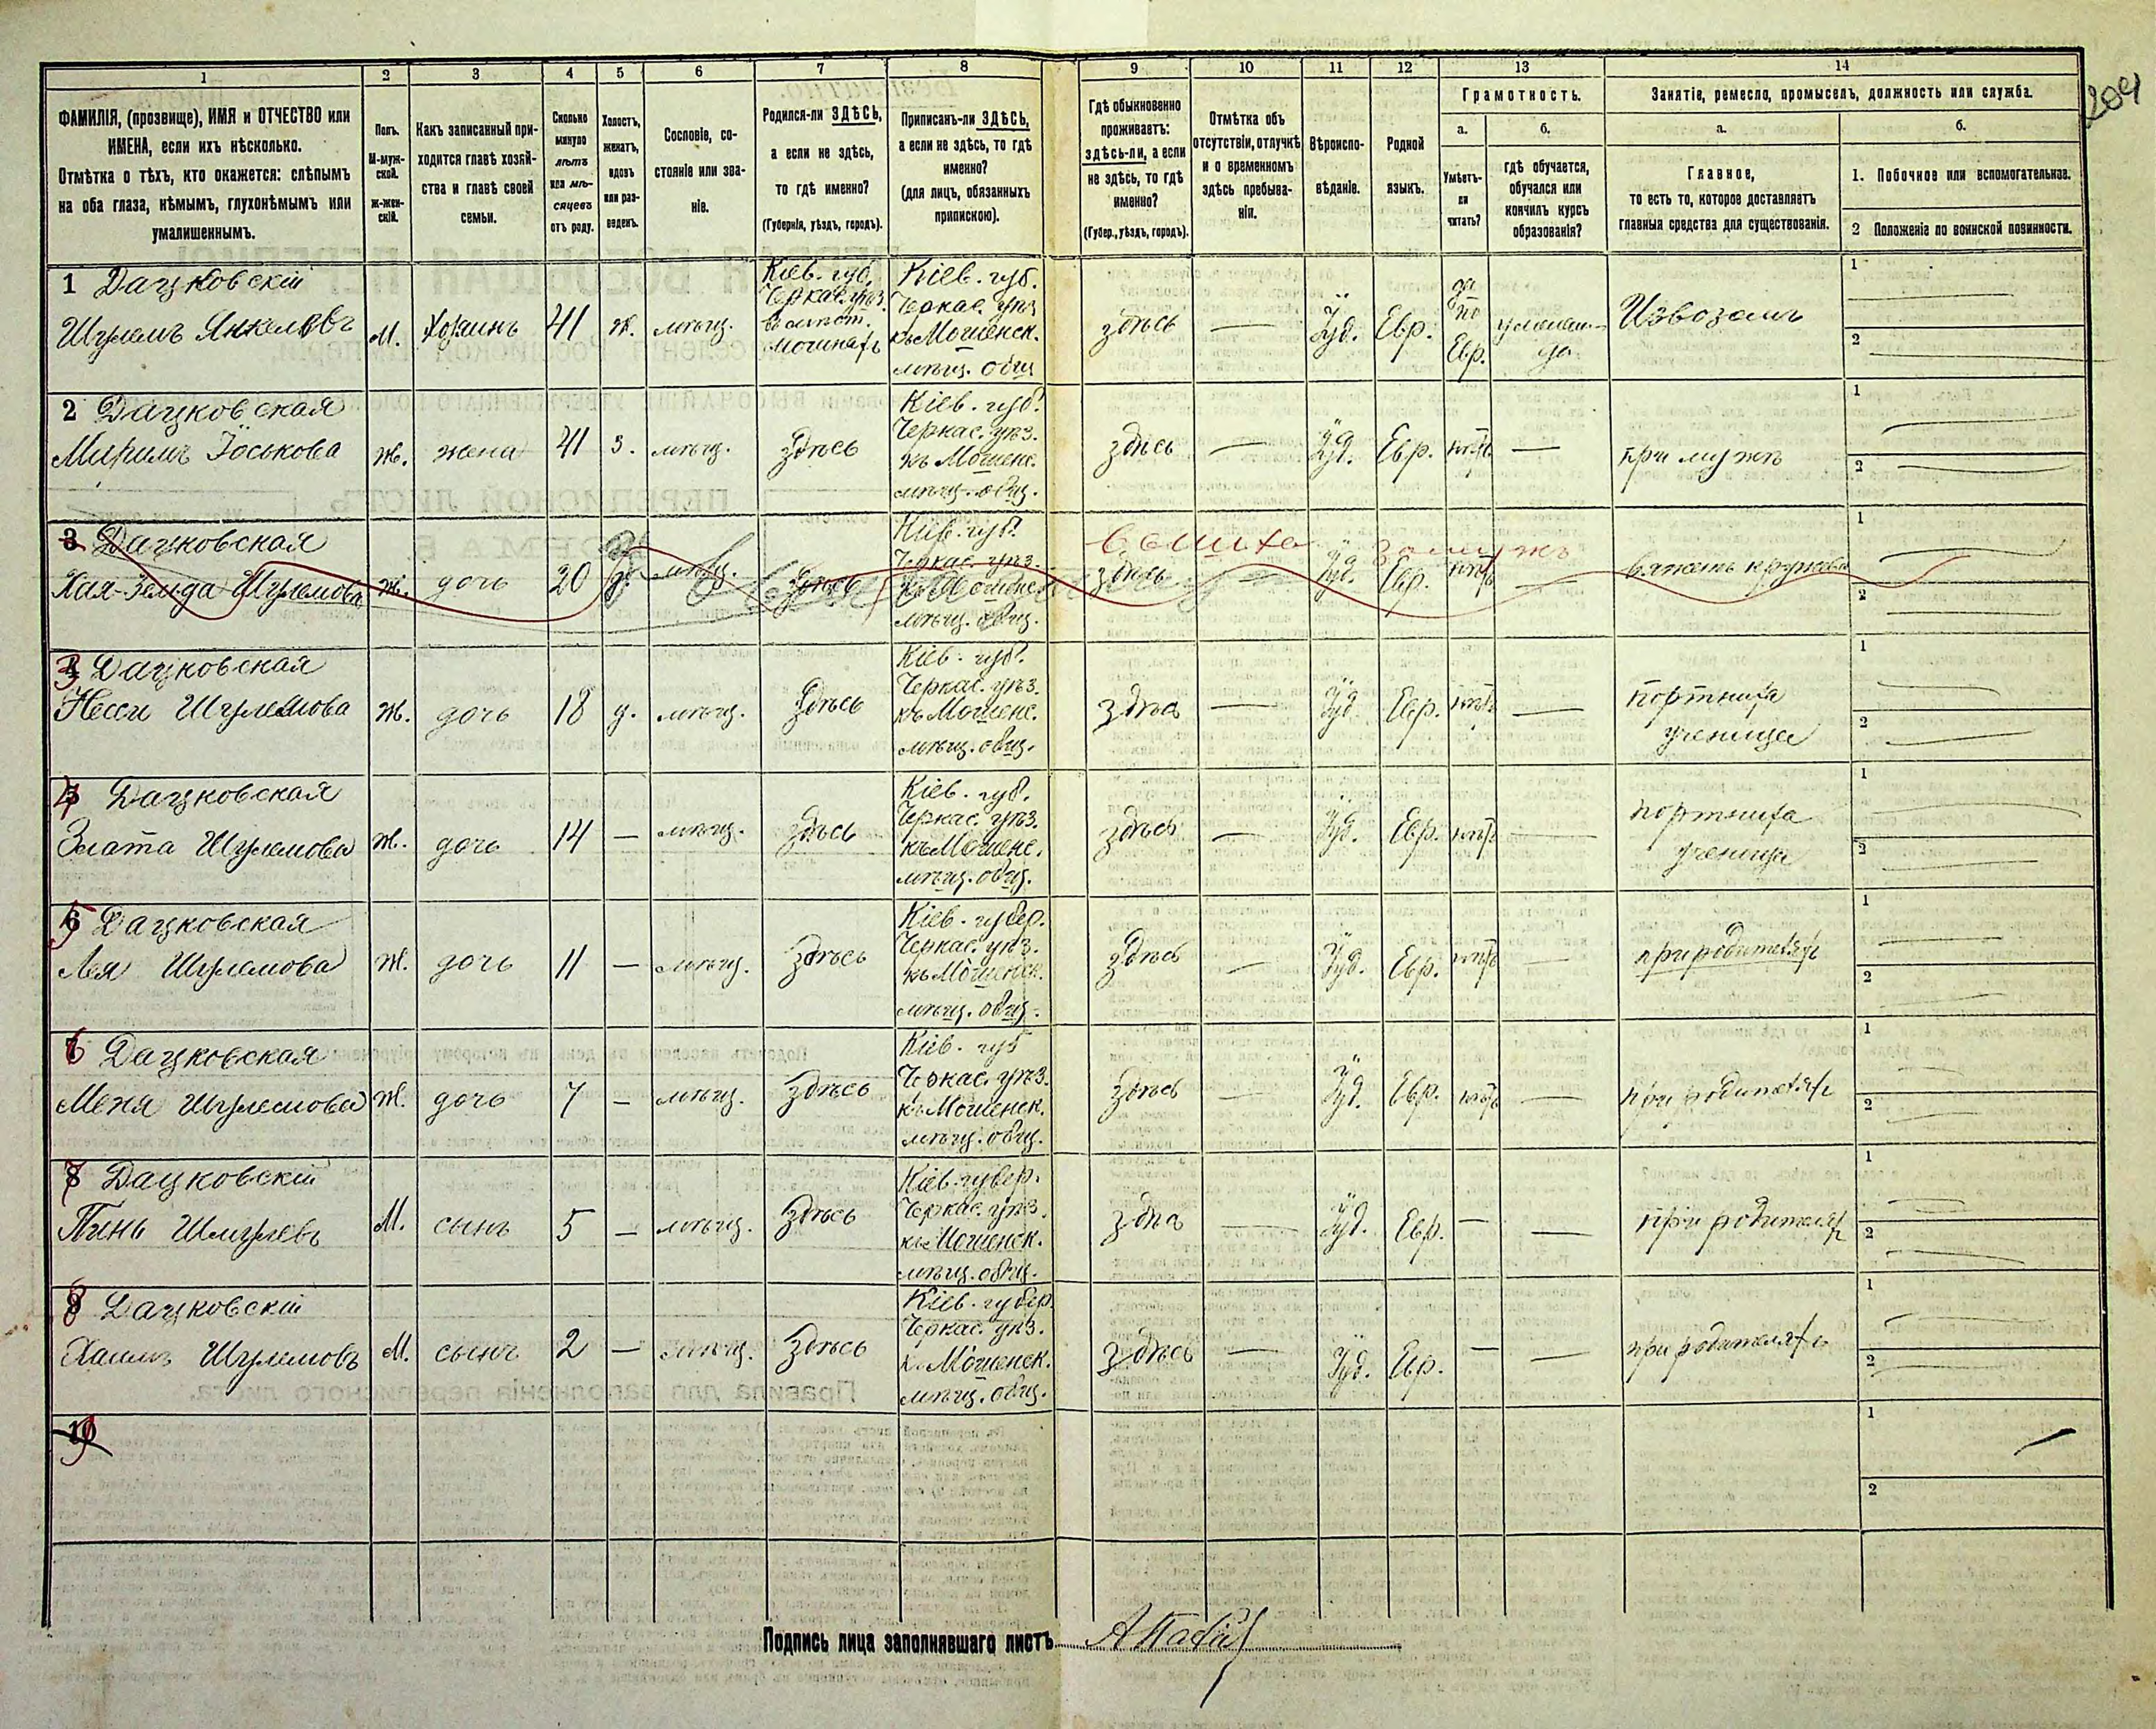 204
1 2 3 4 5 6 7 8 9 10 11 12 13 14
ФАМИЛІЯ, (прозвище), ИМЯ и ОТЧЕСТВО или
ИМЕНА, если ихъ нѣсколько.
Отмѣтка о тѣхъ, кто окажется: слѣпымъ
на оба глаза, нѣмымъ, глухонѣмымъ или
умалишеннымъ.
Полъ.
М-муж-
ской.
ж-жен-
скій.
Какъ записанный при-
ходится главѣ хозяй-
ства и главѣ своей
семьи.
Сколько
минуло
лѣтъ
или мѣ-
сяцевъ
отъ роду.
Холостъ,
женатъ,
вдовъ
или раз-
веденъ.
Сословіе, со-
стояніе или зва-
ніе.
Родился-ли ЗДѢСЬ,
а если не здѣсь,
то гдѣ именно?
(Губернія, уѣздъ, городъ).
Приписанъ-ли ЗДѢСЬ,
а если не здѣсь, то гдѣ
именно?
(для лицъ, обязанныхъ
припискою).
Гдѣ обыкновенно
проживаетъ:
здѣсь-ли, а если
не здѣсь, то гдѣ
именно?
(Губер., уѣздъ, городъ).
Отмѣтка объ
отсутствіи, отлучкѣ
и о временномъ
здѣсь пребыва-
ніи.
Вѣроиспо-
вѣданіе.
Родной
языкъ.
Грамотность.
а.
Умѣетъ-
ли
читать?
б.
гдѣ обучается,
обучался или
кончилъ курсъ
образованія?
Занятіе, ремесло, промыселъ, должность или служба.
а.
Главное,
то есть то, которое доставляетъ
главныя средства для существованія.
б.
1. Побочное или вспомогательное.
2 Положеніе по воинской повинности.
1 Дацковскій
Шулемъ Янкелевъ
М.
Хозяинъ
41
ж.
мѣщ.
Кіев. губ.
Черкас. уѣз.
Кіев. губ.
Черкас. уѣз
къ Мошенск.
мѣщ. общ
здѣсь
—
Іуд.
Евр.
да
по
Евр.
Извозомъ
1
2
2 Дацковская
Миримъ Іоськова
ж.
жена
41
з.
мѣщ.
здѣсь
Кіев. губ.
Черкас. уѣз.
къ Мошенс.
мѣщ. общ.
здѣсь
—
Іуд.
Евр.
нѣтъ
—
при мужѣ
1
2
3 Дацковская
Хая-Зельда Шулемова
ж.
дочь
20
мѣщ.
здѣсь
Кіев. губ.
Черкас. уѣз.
къ Мошенс.
мѣщ. общ.
вышла замужъ
здѣсь
—
Іуд.
Евр.
нѣтъ
—
1
2
3 Дацковская
Несси Шулемова
ж.
дочь
18
д.
мѣщ.
здѣсь
Кіев. губ.
Черкас. уѣз.
къ Мошенс.
мѣщ. общ.
здѣсь
—
Іуд.
Евр.
нѣтъ
—
портниха
ученица
1
2
4 Дацковская
Злата Шулемова
ж.
дочь
14
—
мѣщ.
здѣсь
Кіев. губ.
Черкас. уѣз.
къ Мошенс.
мѣщ. общ.
здѣсь
—
Іуд.
Евр.
нѣтъ
—
портниха
ученица
1
2
5 Дацковская
Лея Шулемова
ж.
дочь
11
—
мѣщ.
здѣсь
Кіев. губер.
Черкас. уѣз.
къ Мошенск.
мѣщ. общ.
здѣсь
—
Іуд.
Евр.
нѣтъ
—
при родителяхъ
1
2
6 Дацковская
Меня Шулемова
ж.
дочь
7
—
мѣщ.
здѣсь
Кіев. губ
Черкас. уѣз.
къ Мошенск.
мѣщ. общ.
здѣсь
—
Іуд.
Евр.
нѣтъ
—
при родителяхъ
1
2
7 Дацковскій
Пинь Шмулевъ
М.
сынъ
5
—
мѣщ.
здѣсь
Кіев. губер.
Черкас. уѣз.
къ Мошенск.
мѣщ. общ.
здѣсь
—
Іуд.
Евр.
—
—
при родителяхъ
1
2
8 Дацковскій
Хаимъ Шулемовъ
М.
сынъ
2
—
мѣщ.
здѣсь
Кіев. губер.
Черкас. уѣз.
къ Мошенск.
мѣщ. общ.
здѣсь
—
Іуд.
Евр.
—
—
при родителяхъ
1
2
10
1
2
Подпись лица заполнявшаго листъ